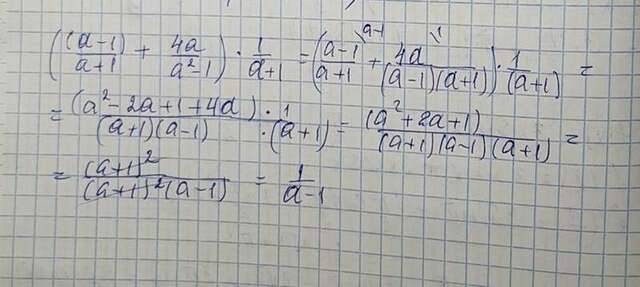 ((a-1)/(a+1) + 4a/(a²-1)) · 1/(a+1) = ((a-1)/(a+1) \a-1 + 4a/((a-1)(a+1)) \1) · 1/(a+1) =
= (a²-2a+1+4a) · 1/((a+1)(a-1) · (a+1)) = (a²+2a+1)/((a+1)(a-1)(a+1)) =
= (a+1)²/((a+1)²(a-1)) = 1/(a-1)